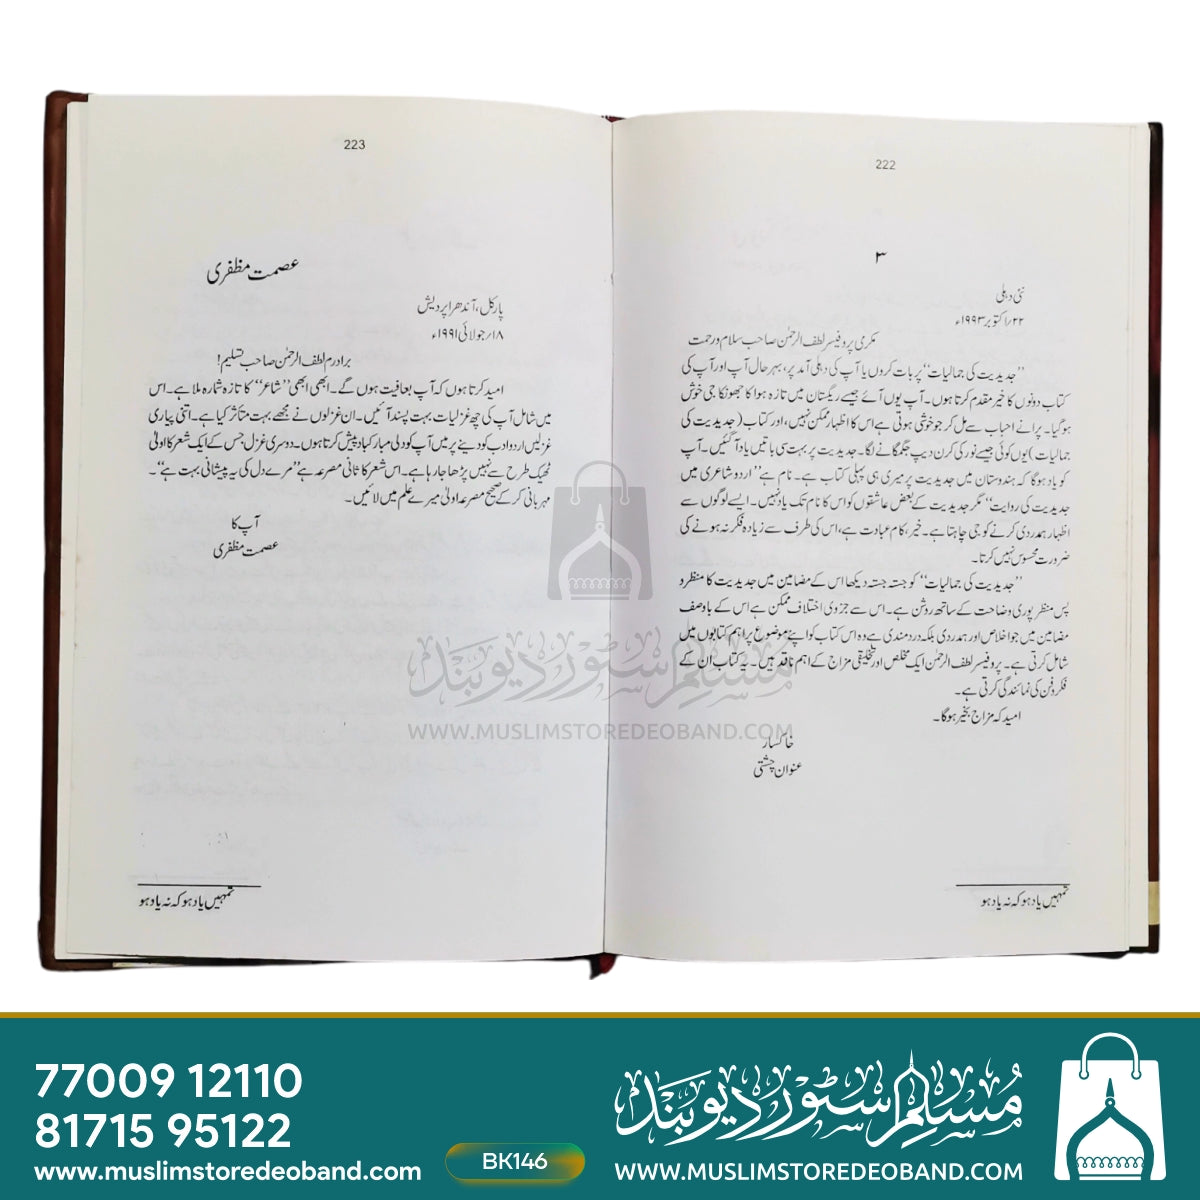 222
۳
نئی دہلی
۲۲؍اکتوبر ۱۹۹۳ء
مکرمی پروفیسر لطف الرحمٰن صاحب سلام ورحمت
”جدیدیت کی جمالیات“ پر بات کروں یا آپ کی دہلی آمد پر، بہرحال آپ اور آپ کی
کتاب دونوں کا خیر مقدم کرتا ہوں۔ آپ یوں آئے جیسے ریگستان میں تازہ ہوا کا جھونکا جی خوش
ہوگیا۔ پرانے احباب سے مل کر جو خوشی ہوتی ہے اس کا اظہار ممکن نہیں، اور کتاب (جدیدیت کی
جمالیات) یوں کوئی جیسے نور کی کرن دیپ جگمگانے لگا۔ جدیدیت پر بہت سی باتیں یاد آگئیں۔ آپ
کو یاد ہوگا کہ ہندوستان میں جدیدیت پر میری ہی پہلی کتاب ہے۔ نام ہے ”اردو شاعری میں
جدیدیت کی روایت“ مگر جدیدیت کے بعض عاشقوں کو اس کا نام تک یاد نہیں۔ ایسے لوگوں سے
اظہار ہمدردی کرنے کو جی چاہتا ہے۔ خیر، کام عبادت ہے، اس کی طرف سے زیادہ فکر نہ ہونے کی
ضرورت محسوس نہیں کرتا۔
”جدیدیت کی جمالیات“ کو جستہ جستہ دیکھا اس کے مضامین میں جدیدیت کا منظر و
پس منظر پوری وضاحت کے ساتھ روشن ہے۔ اس سے جزوی اختلاف ممکن ہے اس کے باوصف
مضامین میں جو اخلاص اور ہمدردی بلکہ دردمندی ہے وہ اس کتاب کو اپنے موضوع پر اہم کتابوں میں
شامل کرتی ہے۔ پروفیسر لطف الرحمٰن ایک مخلص اور تخلیقی مزاج کے اہم ناقد ہیں۔ یہ کتاب ان کے
فکر و فن کی نمائندگی کرتی ہے۔
امید کہ مزاج بخیر ہوگا۔
خاکسار
عنوان چشتی
تمہیں یاد ہو کہ نہ یاد ہو
223
عصمت مظفری
پارکل، آندھرا پردیش
۱۸؍جولائی ۱۹۹۱ء
برادرم لطف الرحمٰن صاحب تسلیم!
امید کرتا ہوں کہ آپ بعافیت ہوں گے۔ ابھی ابھی ”شاعر“ کا تازہ شمارہ ملا ہے۔ اس
میں شامل آپ کی چھ غزلیات بہت پسند آئیں۔ ان غزلوں نے مجھے بہت متاثر کیا ہے۔ اتنی پیاری
غزلیں اردو ادب کو دینے پر میں آپ کو دلی مبارکباد پیش کرتا ہوں۔ دوسری غزل جس کے ایک شعر کا اولیٰ
ٹھیک طرح سے نہیں پڑھا جا رہا ہے۔ اس شعر کا ثانی مصرعہ ہے ”مرے دل کی یہ پیشانی بہت ہے“۔
مہربانی کرکے صحیح مصرعہ اولیٰ میرے علم میں لائیں۔
آپ کا
عصمت مظفری
تمہیں یاد ہو کہ نہ یاد ہو
مسلم سٹور دیوبند
WWW.MUSLIMSTOREDEOBAND.COM
77009 12110
81715 95122
www.muslimstoredeoband.com
BK146
مسلم سٹور دیوبند
WWW.MUSLIMSTOREDEOBAND.COM